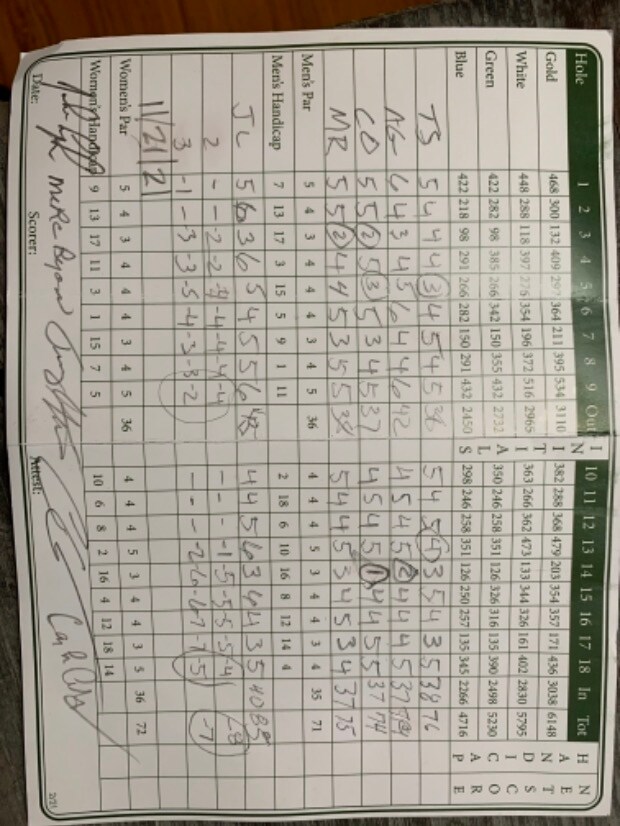 Hole 1 2 3 4 5 6 7 8 9 Out I N I T I A L S 10 11 12 13 14 15 16 17 18 In Tot H A N D I C A P N E T S C O R E
Gold 468 300 132 409 297 364 211 395 534 3110 382 288 368 479 203 354 357 171 436 3038 6148
White 448 288 118 397 276 354 196 372 516 2965 363 266 362 473 133 344 326 161 402 2830 5795
Green 422 282 98 385 266 342 150 355 432 2732 350 246 258 351 126 326 316 135 390 2498 5230
Blue 422 218 98 291 266 282 150 291 432 2450 298 246 258 351 126 250 257 135 345 2266 4716
TS 5 4 4 4 3 4 5 4 5 38 5 4 5 4 3 5 4 3 5 38 76
AG 6 4 3 4 5 6 4 4 6 42 4 5 4 5 2 4 4 4 5 37
CO 5 5 2 5 3 5 3 4 5 37 4 5 4 5 1 4 4 5 5 37 74
MR 5 5 2 4 4 5 3 5 5 38 5 4 4 5 3 4 5 3 4 37 75
Men's Par 5 4 3 4 4 4 3 4 5 36 4 4 4 5 3 4 4 3 4 35 71
Men's Handicap 7 13 17 3 15 5 9 1 11 2 18 6 10 16 8 12 14 4
JL 5 6 3 6 5 4 5 5 6 45 4 4 5 6 3 6 4 3 5 40 85
2 - - -2 -2 -4 -4 -4 -4 -4 - - - -1 -5 -5 -5 -5 -4
3 -1 - -3 -3 -5 -4 -3 -3 -2 - - - -2 -6 -6 -7 -7 -5 -7
11/21/21
Women's Par 5 4 3 4 4 4 3 4 5 36 4 4 4 5 3 4 4 3 5 36 72
Women's Handicap 9 13 17 11 3 1 15 7 5 10 6 8 2 16 4 12 18 14
Date: Scorer: Attest:
2/21